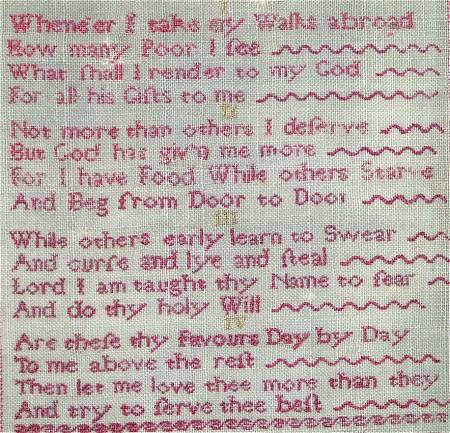 I
Whene'er I take my Walks abroad
How many Poor I ſee
What ſhall I render to my God
For all his Gifts to me
II
Not more than others I deſerve
But God has giv'n me more
For I have Food While others Starve
And Beg from Door to Door
III
While others early learn to Swear
And curſe and lye and ſteal
Lord I am taught thy Name to fear
And do thy holy Will
IV
Are theſe thy favours Day by Day
To me above the reſt
Then let me love thee more than they
And try to ſerve thee beſt